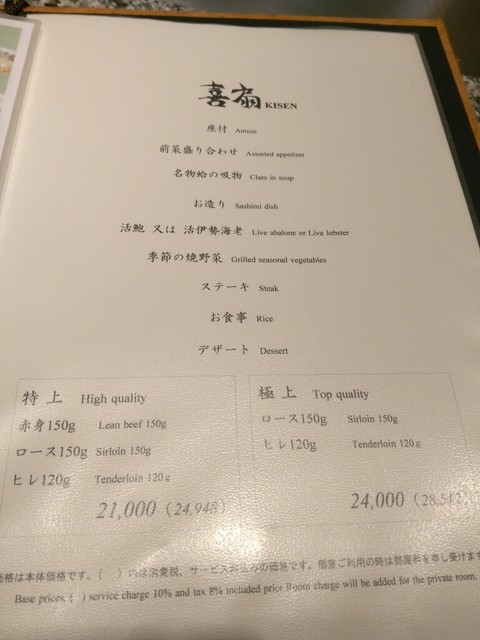 喜扇 KISEN
座付 Amuse
前菜盛り合わせ Assorted appetizer
名物蛤の吸物 Clam in soup
お造り Sashimi dish
活鮑 又は 活伊勢海老 Live abalone or Live lobster
季節の焼野菜 Grilled seasonal vegetables
ステーキ Steak
お食事 Rice
デザート Dessert
特上 High quality
赤身150g Lean beef 150g
ロース150g Sirloin 150g
ヒレ120g Tenderloin 120g
21,000 (24,948)
極上 Top quality
ロース150g Sirloin 150g
ヒレ120g Tenderloin 120g
24,000 (28,512)
価格は本体価格です。( )内は消費税、サービス料込みの価格です。個室ご利用の時は部屋料を申し受けます
Base prices, ( ) service charge 10% and tax 8% included price Room charge will be added for the private room.